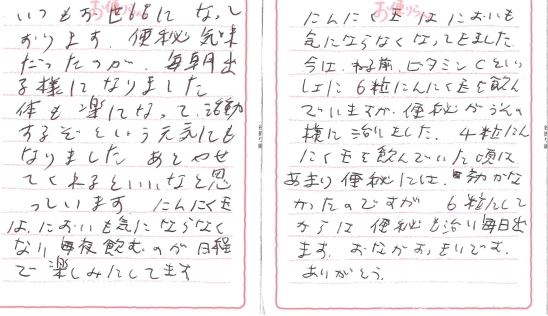 いつもお世話になって
おります。便秘気味
だったのが、毎朝出
る様になりました
体も楽になって、活動
するぞという元気にも
なりました あとやせ
てくれるといいなと思
っています にんにく玉
は、においも気にならなく
なり 毎夜飲むのが日程
で楽しみにしてます
にんにく玉はにおいも
気にならなくなってきました
今は、ねる前、ビタミンCといっ
しょに6粒にんにく玉を飲ん
でいますが、便秘がうその
様に治りました。4粒にん
にく玉を飲んでいた頃は
あまり便秘には、効かな
かったのですが 6粒にして
からは 便秘も治り毎日出
ます。おなかすっきりです。
ありがとう。